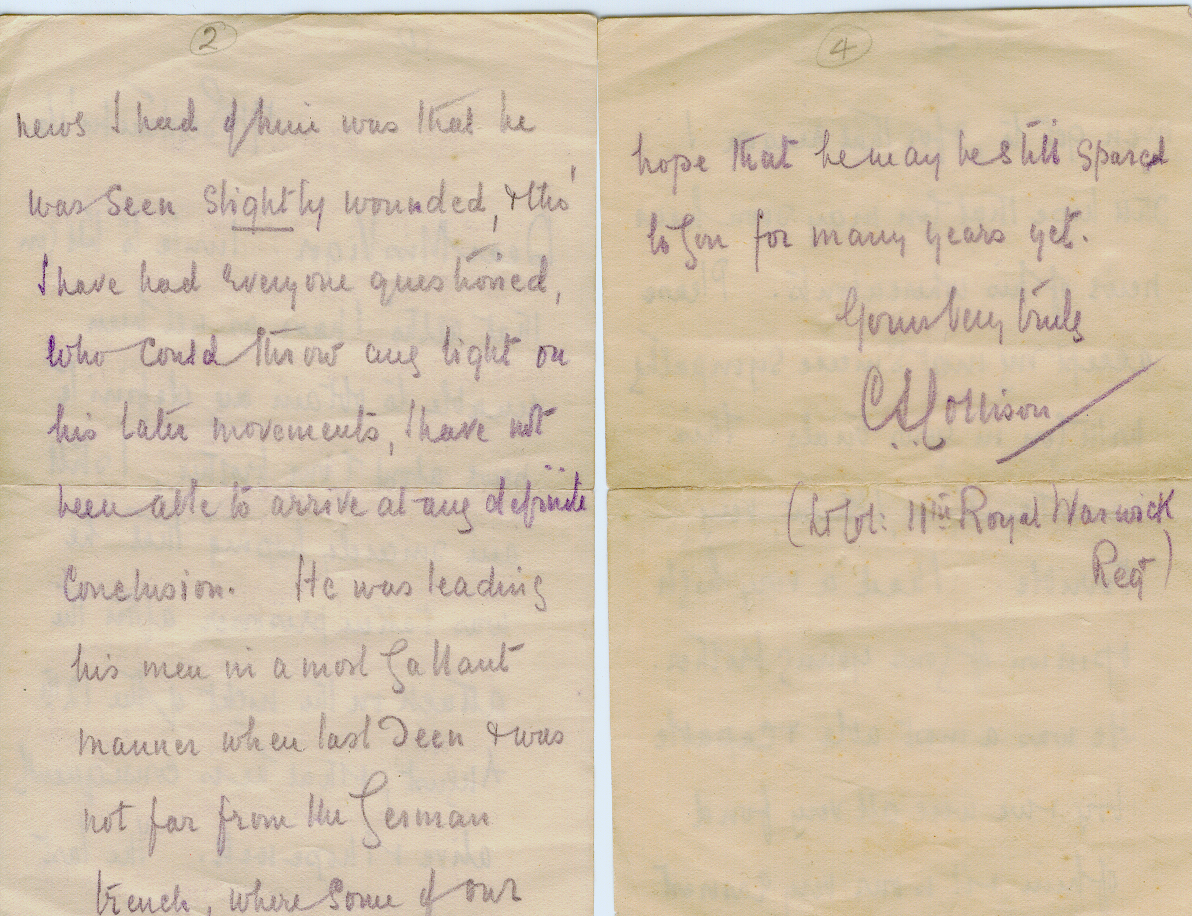 2
news I had of him was that he
was seen slightly wounded, & tho'
I have had everyone questioned,
who could throw any light on
his later movements, I have not
been able to arrive at any definite
conclusion. He was leading
his men in a most gallant
manner when last seen & was
not far from the German
trench, where some of our
4
hope that he may be still spared
to you for many years yet.
Yours very truly
C S Collison
(Lt Col: 11th Royal Warwick
Regt)